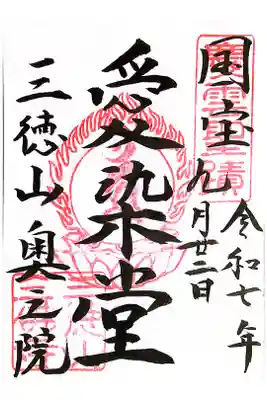 国宝
令和七年
九月廿二日
愛染堂
三徳山奥之院